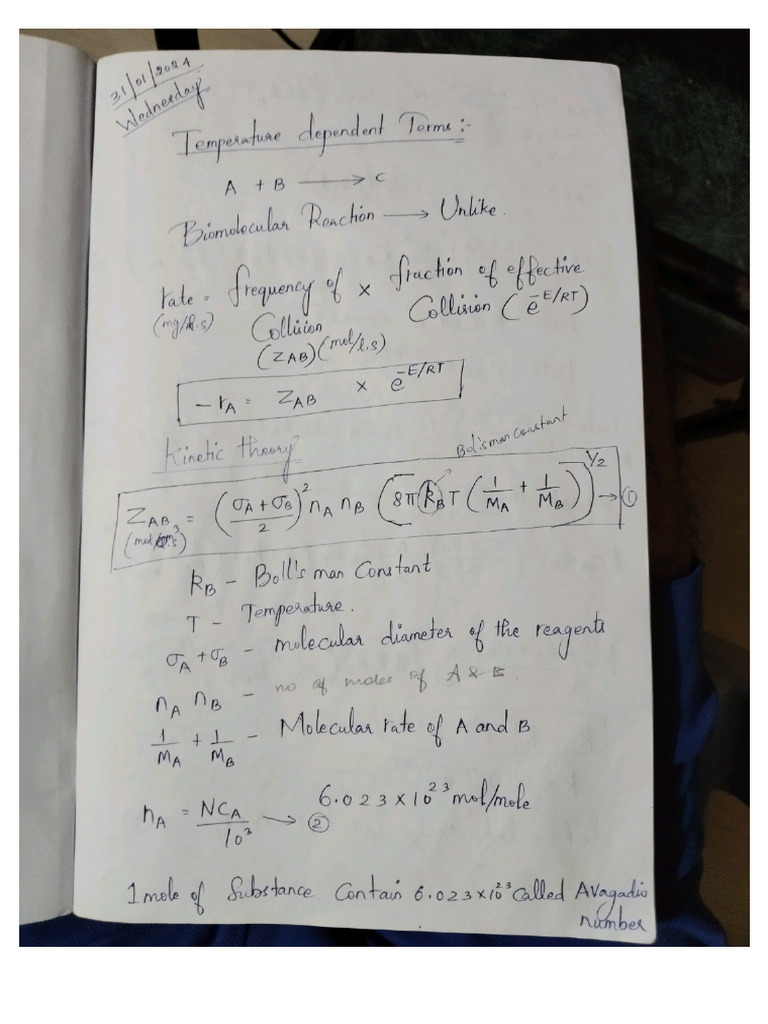 31/01/2024
Wednesday
Temperature dependent Terms:-
A + B ⟶ C
Biomolecular Reaction ⟶ Unlike.
rate = frequency of × fraction of effective
(mg/l.s) Collision Collision (e^-E/RT)
(Z_AB) (mol/l.s)
-r_A = Z_AB × e^-E/RT
Kinetic theory
Bolisman constant
Z_AB = ((σ_A + σ_B)/2)^2 n_A n_B (8π k_B T (1/M_A + 1/M_B))^1/2 → ①
k_B - Boll's man Constant
T - Temperature.
σ_A + σ_B - molecular diameter of the reagents
n_A n_B - no of moles of A & B.
1/M_A + 1/M_B - Molecular rate of A and B
n_A = NC_A/10^3 → ② 6.023 × 10^23 mol/mole
1 mole of Substance Contain 6.023 × 10^23 called Avagadio
number